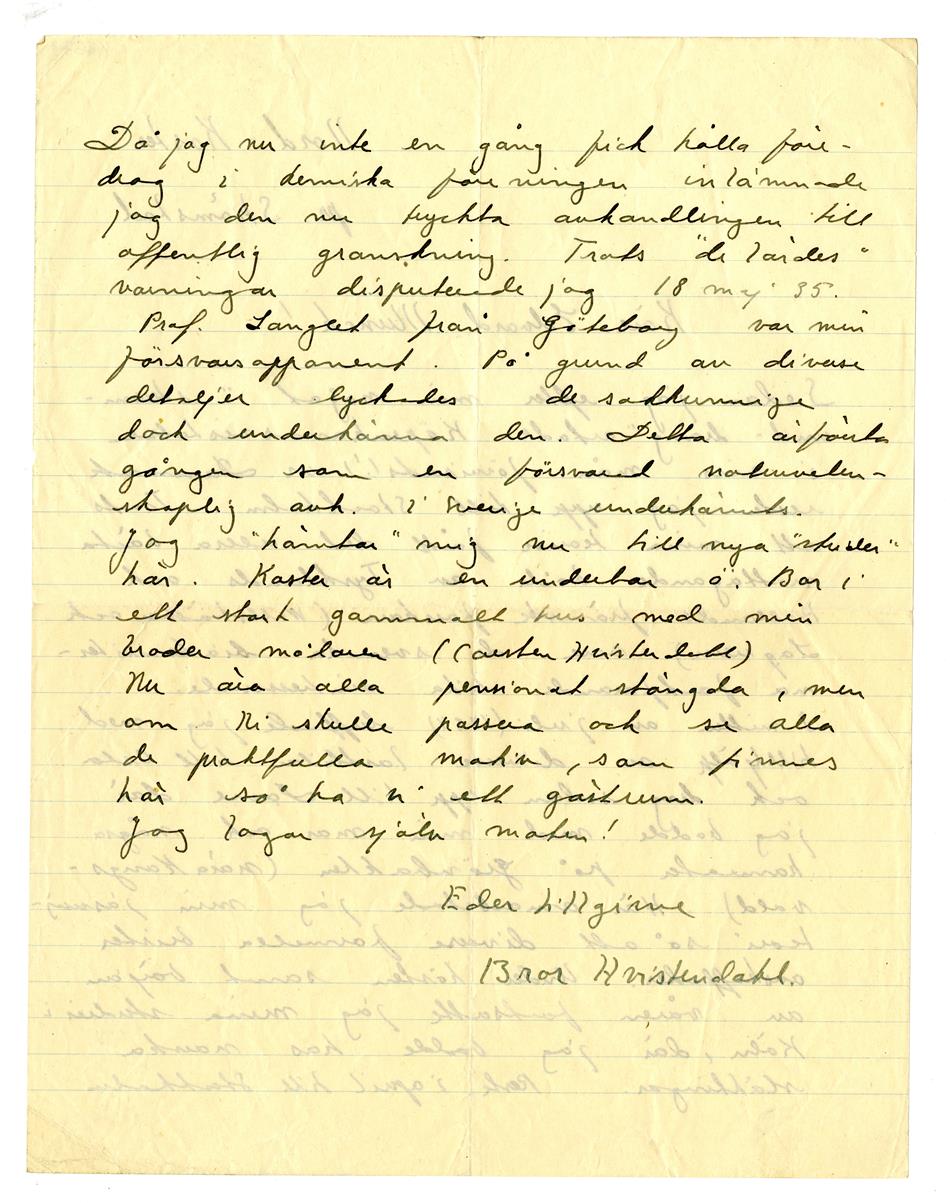 Då jag nu inte en gång fick hålla före-
drag i kemiska föreningen inlämnade
jag den nu tryckta avhandlingen till
offentlig granskning. Trots "de lärdes"
varningar disputerade jag 18 maj 35.
Prof. Langlet från Göteborg var min
försvarsopponent. På grund av diverse
detaljer lyckades de sakkunniga
dock underkänna den. Detta är första
gången som en försvarad naturveten-
skaplig avh. i Sverige underkännts.
Jag "hämtar" mig nu till nya "studier"
här. Koster är en underbar ö. Bor i
ett stort gammalt hus med min
broder målaren (Carsten Hvistendahl)
Nu äro alla pensionat stängda, men
om Ni skulle passera och se alla
de praktfulla motiv, som finnes
här så ha vi ett gästrum.
Jag lagar själv maten!
Eder tillgivne
Bror Hvistendahl.